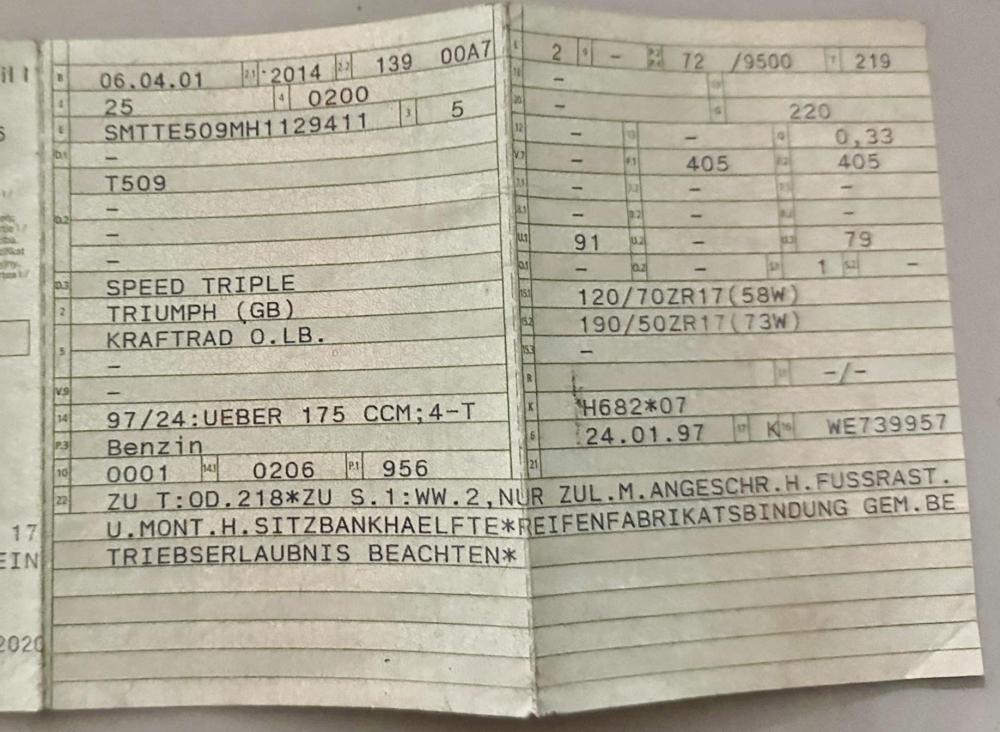 il I
B 06.04.01 2.1 2014 2.2 139 00A7
J 25 4 0200
E SMTTE509MH1129411 3 5
D.1 –
T509
D.2 –
–
–
D.3 SPEED TRIPLE
2 TRIUMPH (GB)
5 KRAFTRAD O.LB.
–
V.9 –
14 97/24:UEBER 175 CCM;4-T
P.3 Benzin
10 0001 14.1 0206 P.1 956
L 2 9 – P.2 P.4 72 /9500 T 219
18 –
20 – G 220
12 – 13 – Q 0,33
V.7 – F.1 405 F.2 405
7.1 – 7.2 – 7.3 –
8.1 – 8.2 – 8.3 –
U.1 91 U.2 – U.3 79
O.1 – O.2 – S.1 1 S.2 –
15.1 120/70ZR17(58W)
15.2 190/50ZR17(73W)
15.3 –
R –/–
K *H682*07
6 24.01.97 17 K 16 WE739957
21
22 ZU T:OD.218*ZU S.1:WW.2,NUR ZUL.M.ANGESCHR.H.FUSSRAST.
U.MONT.H.SITZBANKHAELFTE*REIFENFABRIKATSBINDUNG GEM.BE
TRIEBSERLAUBNIS BEACHTEN*
17
EIN
2020